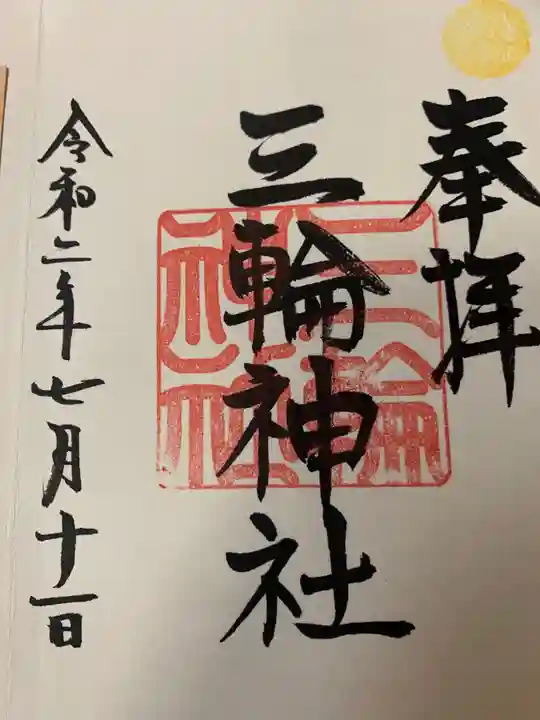 奉拝
三輪神社
三輪神社
令和二年七月十一日